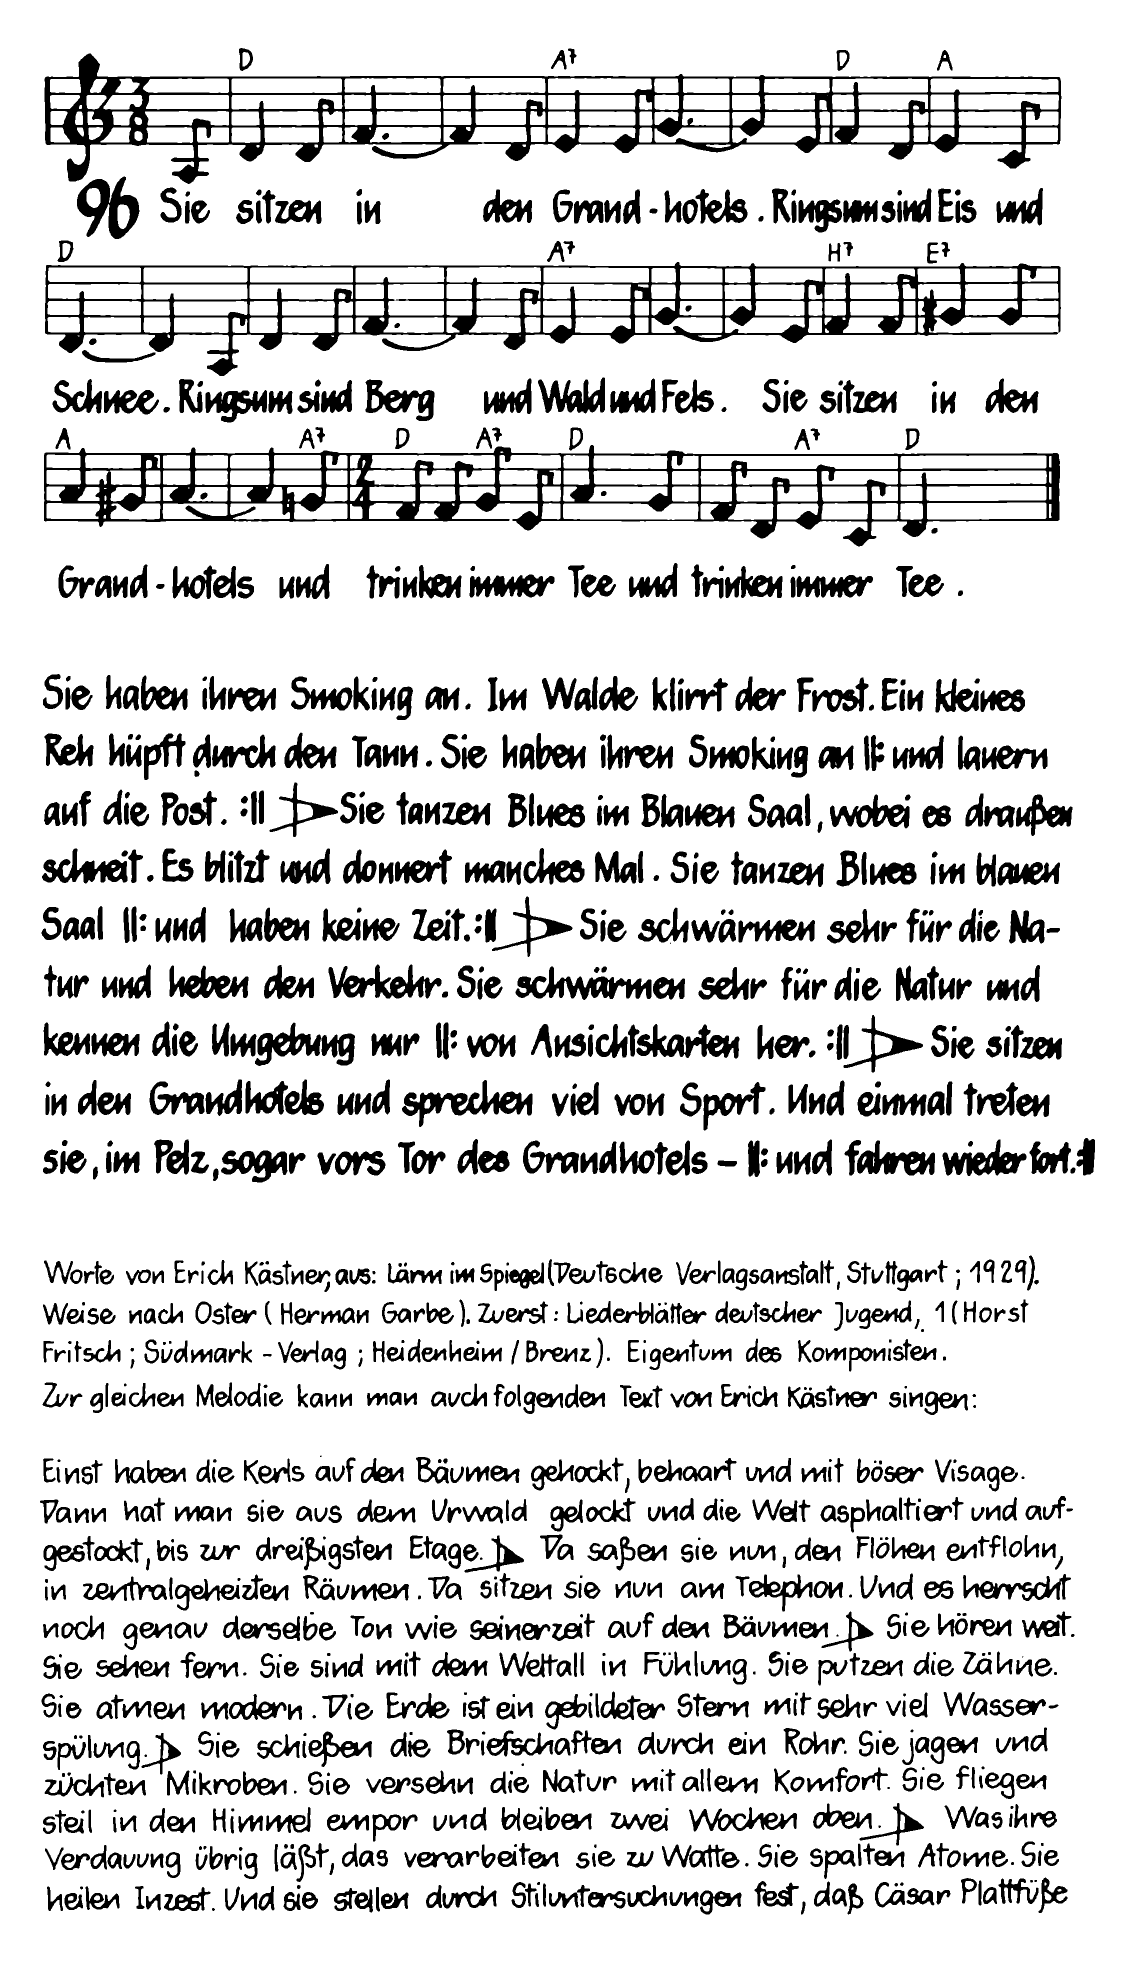 D A7 D A
3 8
96 Sie sitzen in den Grand-hotels. Ringsum sind Eis und
D A7 H7 E7
Schnee. Ringsum sind Berg und Wald und Fels. Sie sitzen in den
A A7 D A7 D A7 D
2 4
Grand-hotels und trinken immer Tee und trinken immer Tee.
Sie haben ihren Smoking an. Im Walde klirrt der Frost. Ein kleines
Reh hüpft durch den Tann. Sie haben ihren Smoking an ||: und lauern
auf die Post. :|| Sie tanzen Blues im Blauen Saal, wobei es draußen
schneit. Es blitzt und donnert manches Mal. Sie tanzen Blues im blauen
Saal ||: und haben keine Zeit. :|| Sie schwärmen sehr für die Na-
tur und heben den Verkehr. Sie schwärmen sehr für die Natur und
kennen die Umgebung nur ||: von Ansichtskarten her. :|| Sie sitzen
in den Grandhotels und sprechen viel von Sport. Und einmal treten
sie, im Pelz, sogar vors Tor des Grandhotels – ||: und fahren wieder fort. :||
Worte von Erich Kästner, aus: Lärm im Spiegel (Deutsche Verlagsanstalt, Stuttgart; 1929).
Weise nach Oster (Herman Garbe). Zuerst: Liederblätter deutscher Jugend, 1 (Horst
Fritsch; Südmark-Verlag; Heidenheim/Brenz). Eigentum des Komponisten.
Zur gleichen Melodie kann man auch folgenden Text von Erich Kästner singen:
Einst haben die Kerls auf den Bäumen gehockt, behaart und mit böser Visage.
Dann hat man sie aus dem Urwald gelockt und die Welt asphaltiert und auf-
gestockt, bis zur dreißigsten Etage. Da saßen sie nun, den Flöhen entflohn,
in zentralgeheizten Räumen. Da sitzen sie nun am Telephon. Und es herrscht
noch genau derselbe Ton wie seinerzeit auf den Bäumen. Sie hören weit.
Sie sehen fern. Sie sind mit dem Weltall in Fühlung. Sie putzen die Zähne.
Sie atmen modern. Die Erde ist ein gebildeter Stern mit sehr viel Wasser-
spülung. Sie schießen die Briefschaften durch ein Rohr. Sie jagen und
züchten Mikroben. Sie versehn die Natur mit allem Komfort. Sie fliegen
steil in den Himmel empor und bleiben zwei Wochen oben. Was ihre
Verdauung übrig läßt, das verarbeiten sie zu Watte. Sie spalten Atome. Sie
heilen Inzest. Und sie stellen durch Stiluntersuchungen fest, daß Cäsar Plattfüße